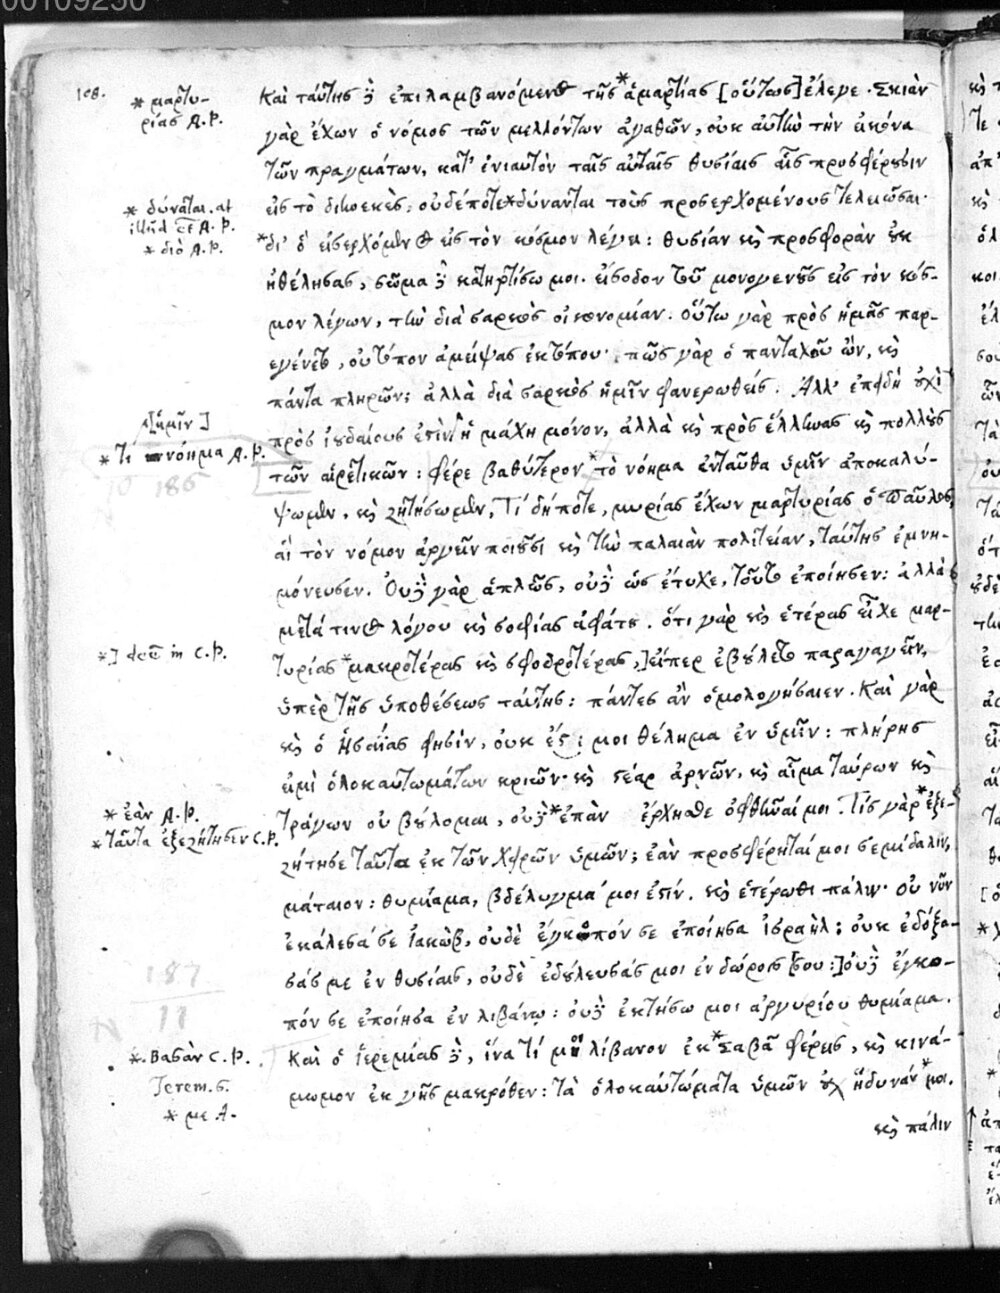 00109250
108.
* μαρτυ-
ρίας A.P.
καὶ ταύτης δὲ ἐπιλαμβανόμενος τῆς *ἁμαρτίας [οὕτως] ἔλεγε. Σκιὰν
γὰρ ἔχων ὁ νόμος τῶν μελλόντων ἀγαθῶν, οὐκ αὐτὴν τὴν εἰκόνα
τῶν πραγμάτων, κατ' ἐνιαυτὸν ταῖς αὐταῖς θυσίαις αἷς προσφέρουσιν
* δύναται. at
A.P.
* διὸ A.P.
εἰς τὸ διηνεκὲς, οὐδέποτε *δύνανται τοὺς προσερχομένους τελειῶσαι.
*δι' ὃ εἰσερχόμενος εἰς τὸν κόσμον λέγει: θυσίαν καὶ προσφορὰν οὐκ
ἠθέλησας, σῶμα δὲ κατηρτίσω μοι. εἴσοδον τοῦ μονογενοῦς εἰς τὸν κόσ-
μον λέγων, τὴν διὰ σαρκὸς οἰκονομίαν. Οὕτω γὰρ πρὸς ἡμᾶς παρ-
εγένετο, οὐ τόπον ἀμείψας ἐκ τόπου. πῶς γὰρ ὁ πανταχοῦ ὢν, καὶ
πάντα πληρῶν; ἀλλὰ διὰ σαρκὸς ἡμῖν φανερωθείς. Ἀλλ' ἐπειδὴ οὐχὶ
[ἡμῖν]
* Τι νόημα A.P.
10 186
πρὸς ἰουδαίους ἐστὶν ἡ μάχη μόνον, ἀλλὰ καὶ πρὸς ἕλληνας καὶ πολλοὺς
τῶν αἱρετικῶν: φέρε βαθύτερον *τὸ νόημα ἐνταῦθα ὑμῖν ἀποκαλύ-
ψωμεν, καὶ ζητήσωμεν, Τί δήποτε, μυρίας ἔχων μαρτυρίας ὁ Παῦλος,
αἳ τὸν νόμον ἀργεῖν ποιοῦσι καὶ τὴν παλαιὰν πολιτείαν, ταύτης ἐμνη-
μόνευσεν. Οὐδὲ γὰρ ἁπλῶς, οὐδὲ ὡς ἔτυχε, τοῦτο ἐποίησεν: ἀλλὰ
μετά τινος λόγου καὶ σοφίας ἀφάτου. ὅτι γὰρ καὶ ἑτέρας εἶχε μαρ-
*] in C.P.
τυρίας *μακροτέρας καὶ σφοδροτέρας,] εἴπερ ἐβούλετο παραγαγεῖν,
ὑπὲρ τῆς ὑποθέσεως ταύτης: πάντες ἂν ὁμολογήσαιεν. Καὶ γὰρ
καὶ ὁ Ἡσαΐας φησὶν, οὐκ ἔστι μοι θέλημα ἐν ὑμῖν: πλήρης
εἰμὶ ὁλοκαυτωμάτων κριῶν· καὶ στέαρ ἀρνῶν, καὶ αἷμα ταύρων καὶ
* ἐὰν A.P.
* ταῦτα ἐξεζήτησεν C.P.
τράγων οὐ βούλομαι, οὐδὲ *ἐπὰν ἔρχησθε ὀφθῆναί μοι. Τίς γὰρ *ἐξε-
ζήτησε ταῦτα ἐκ τῶν χειρῶν ὑμῶν; ἐὰν προσφέρηταί μοι σεμίδαλιν,
μάταιον: θυμίαμα, βδέλυγμά μοι ἐστίν. καὶ ἑτέρωθι πάλιν· οὐ νῦν
ἐκάλεσά σε Ἰακὼβ, οὐδὲ ἔγκοπόν σε ἐποίησα Ἰσραήλ; οὐκ ἐδόξα-
187
11
σάς με ἐν θυσίαις, οὐδὲ ἐδούλευσάς μοι ἐν δώροις [σου:] οὐδὲ ἔγκο-
πόν σε ἐποίησα ἐν λιβάνῳ: οὐδὲ ἐκτήσω μοι ἀργυρίου θυμίαμα.
* Βασὰν C.P.
Jerem. 6.
* με A.
Καὶ ὁ Ἱερεμίας δὲ, ἵνα τί μοι λίβανον ἐκ *Σαβᾶ φέρεις, καὶ κινά-
μωμον ἐκ γῆς μακρόθεν: τὰ ὁλοκαυτώματα ὑμῶν οὐχ ἥδυνάν *μοι.
καὶ πάλιν